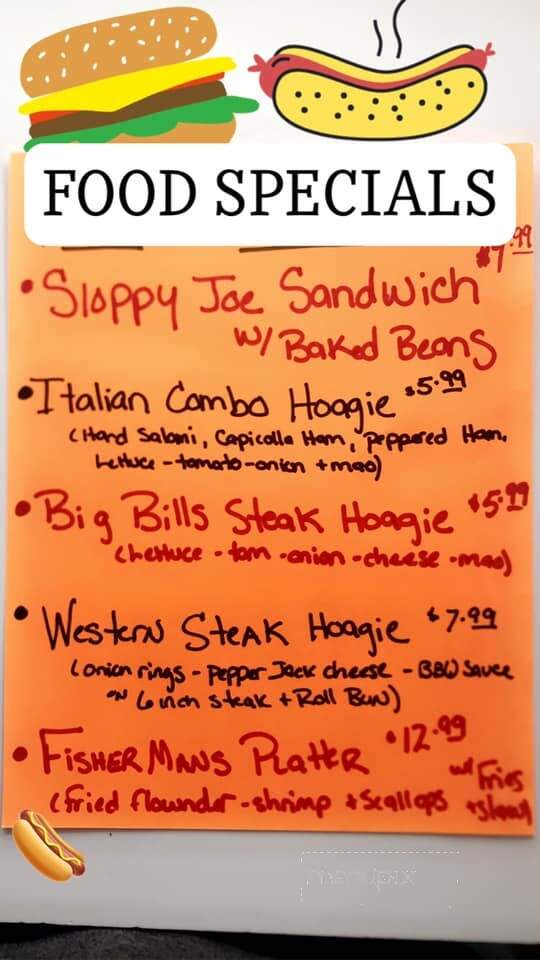 FOOD SPECIALS
• Sloppy Joe Sandwich .99
w/ Baked Beans
• Italian Combo Hoagie $5.99
(Hard Salami, Capicolla Ham, peppered Ham,
Lettuce - tomato - onion + mao)
• Big Bills Steak Hoagie $5.99
(Lettuce - tom - onion - cheese - mao)
• Western Steak Hoagie $7.99
(onion rings - pepper Jack cheese - BBQ sauce
on 6 inch steak + Roll Bun)
• FisherMans Platter $12.99
w/ Fries
(fried flounder - shrimp + Scallops + slaw)
menupix